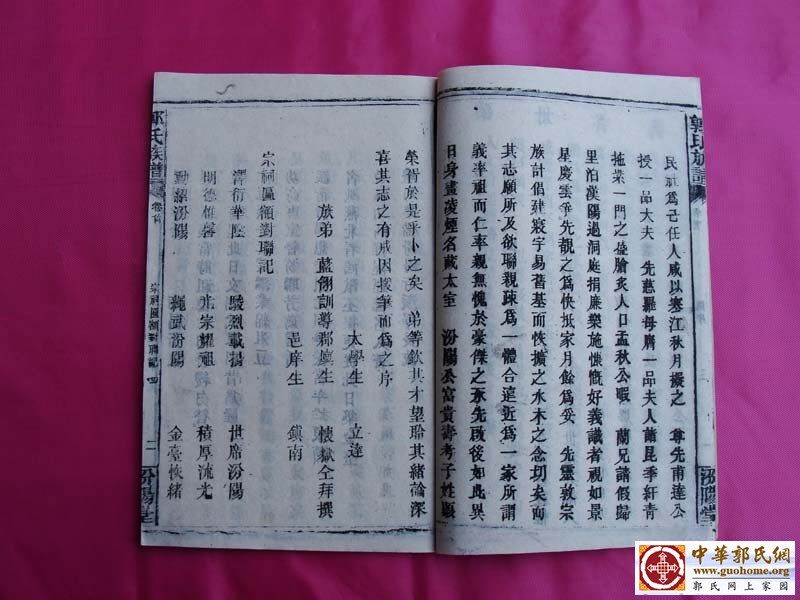 郭氏族譜
卷首
汾陽堂
民社爲己任人咸以寒江秋月擬之 尊先甫達公
授一品大夫 先慈羅母膺一品夫人蕭昆季紆青
拖紫一門之盛膾炙人口孟秋公暇 蘭兄請假歸
里泊漢陽過洞庭捐廉樂施慷慨好義識者視如景
星慶雲爭先覩之爲快抵家月餘爲妥 先靈敦宗
族計倡建寢宇易舊基而恢擴之水木之念切矣而
其志願所及欲聯親疎爲一體合遠近爲一家所謂
義率祖而仁率親無愧於豪傑之承先啟後如此異
日身畫凌煙名藏太室 汾陽公富貴壽考子姓顯
榮胥於是乎卜之矣 弟等欽其才望聆其緒論深
喜其志之有成因援筆而爲之序
太學生 立達
族弟 藍翎訓導郡廩生 懷嶽仝拜撰
邑庠生 鎮南
宗祠匾額對聯記
澤衍華陰 駿烈載揚 世席汾陽
明德惟馨 光宗耀祖 積厚流光
勳紹汾陽 繩武汾陽 金臺恢緒
郭氏族譜
卷首
宗祠匾額對聯記
二
汾陽堂
中華郭氏網
www.guohome.org
郭氏网上家园